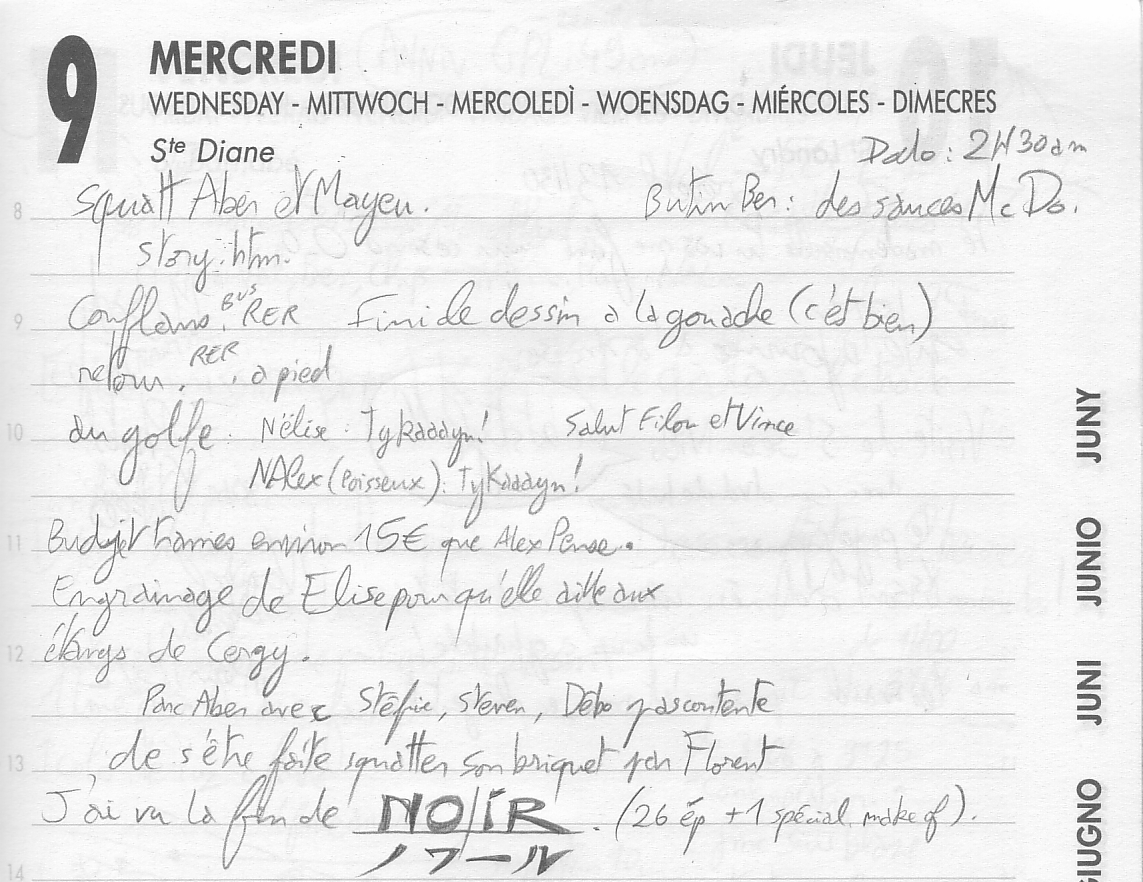 9
MERCREDI
WEDNESDAY - MITTWOCH - MERCOLEDÌ - WOENSDAG - MIÉRCOLES - DIMECRES
Ste Diane
Dodo : 2H30am
8 Squatt Aben et Mayeu. Butin Ben : des sauces McDo.
story.htm.
9 Conflans. BUS RER Fini de dessin a la gouache (c'est bien)
retour. RER . a pied
10 du golfe : Nélise : Tykaaayn! Salut Filou et Vince
NAlex (Poisseux) : TyKaaayn!
11 Budget trames environ 15€ que Alex Pense.
Engrainage de Elise pour qu'elle aille aux
12 étangs de Cergy.
Parc Aben avec Stéfie, Steven, Débo pas contente
13 de s'être faite squatter son briquet par Florent
J'ai vu la fin de NOIR . (26 ép + 1 spécial make of).
ノワール
14
JUNY
JUNIO
JUNI
GIUGNO